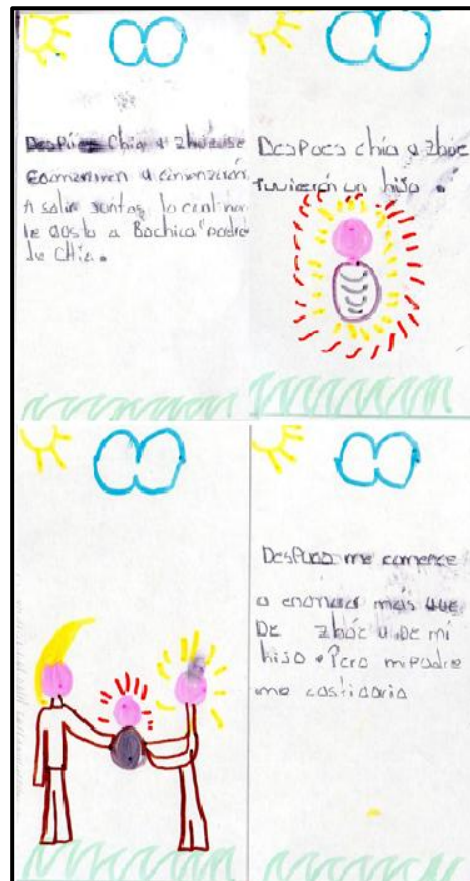 Después Chia y Zhué se
comenzaron a
A salir juntos, lo cual no
le gusto a Bochica "padre
de Chia.
Despues chia y Zhúe
tuvierón un hijo.
Despues me comence
a enamorar más que
De Zhúe y de mi
hijo. Pero mi padre
me castigaría